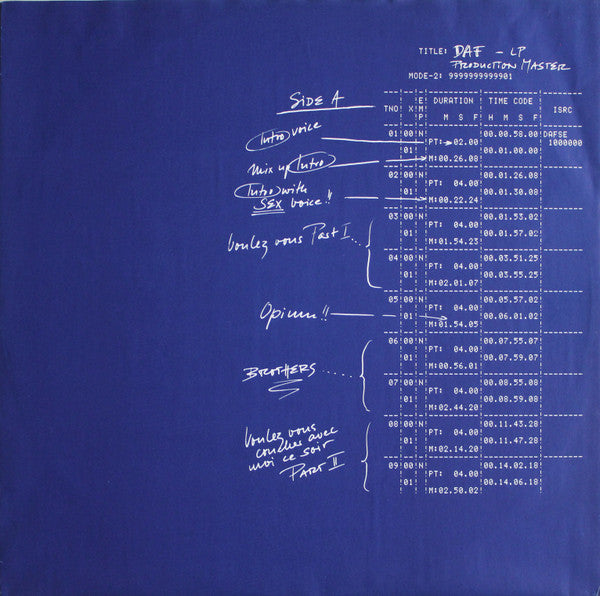 TITLE: DAF - LP
PRODUCTION MASTER
MODE-2: 9999999999901
SIDE A
TNO X EMP DURATION TIME CODE ISRC
M S F H M S F
Intro voice
01 00 N PT: 02.00 00.00.58.00 DAFSE
01 M:00.26.08 00.01.00.00 1000000
mix up Intro
02 00 N PT: 04.00 00.01.26.08
01 M:00.22.24 00.01.30.08
Intro with
SEX voice!!
03 00 N PT: 04.00 00.01.53.02
01 M:01.54.23 00.01.57.02
Voulez vous Part I
04 00 N PT: 04.00 00.03.51.25
01 M:02.01.07 00.03.55.25
05 00 N PT: 04.00 00.05.57.02
01 M:01.54.05 00.06.01.02
Opium!!
06 00 N PT: 04.00 00.07.55.07
01 M:00.56.01 00.07.59.07
BROTHERS
07 00 N PT: 04.00 00.08.55.08
01 M:02.44.20 00.08.59.08
08 00 N PT: 04.00 00.11.43.28
01 M:02.14.20 00.11.47.28
Voulez vous
coucher avec
moi ce soir
PART II
09 00 N PT: 04.00 00.14.02.18
01 M:02.50.02 00.14.06.18